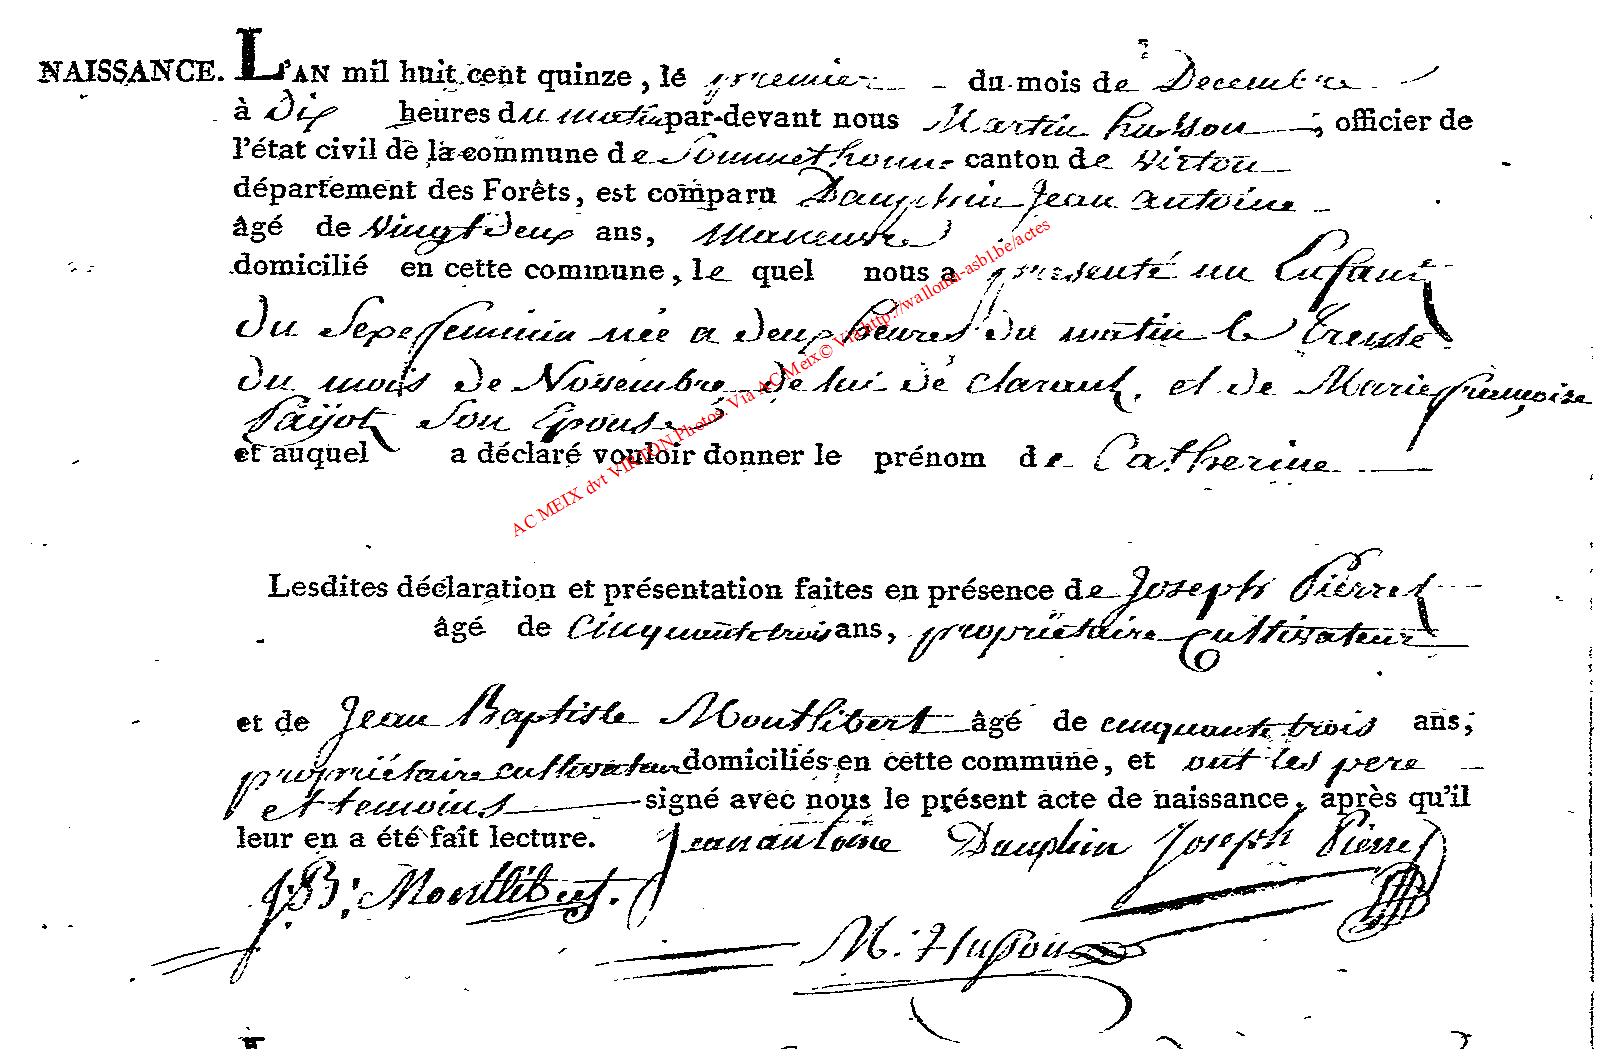 NAISSANCE. L'AN mil huit cent quinze, le premier du mois de Decembre
à Dix heures du matin par-devant nous Martin husson, officier de
l'état civil de la commune de Sommethonne canton de Virton
département des Forêts, est comparu Dauphin Jean antoine
âgé de Vingt Deux ans, Maneuvre
domicilié en cette commune, le quel nous a presenté un Enfant
du Sexe feminin née a deux heures du matin le trente
du mois de Novembre de lui dé clarant, et de Marie françoise
Payot Son Epouse
et auquel a déclaré vouloir donner le prénom de Catherine
AC MEIX dvt VIRTON Photos Via AC Meix© Via http://wallonia-asbl.be/actes
Lesdites déclaration et présentation faites en présence de Joseph Pierret
âgé de Cinquante trois ans, propriétaire Cultivateur
et de Jean Baptiste Montlibert âgé de cinquante trois ans,
propriétaire cultivateur domiciliés en cette commune, et ont les pere
et temoins signé avec nous le présent acte de naissance, après qu'il
leur en a été fait lecture. Jean antoine Dauphin Joseph Pierret
J: B: Montlibert.
M. Husson